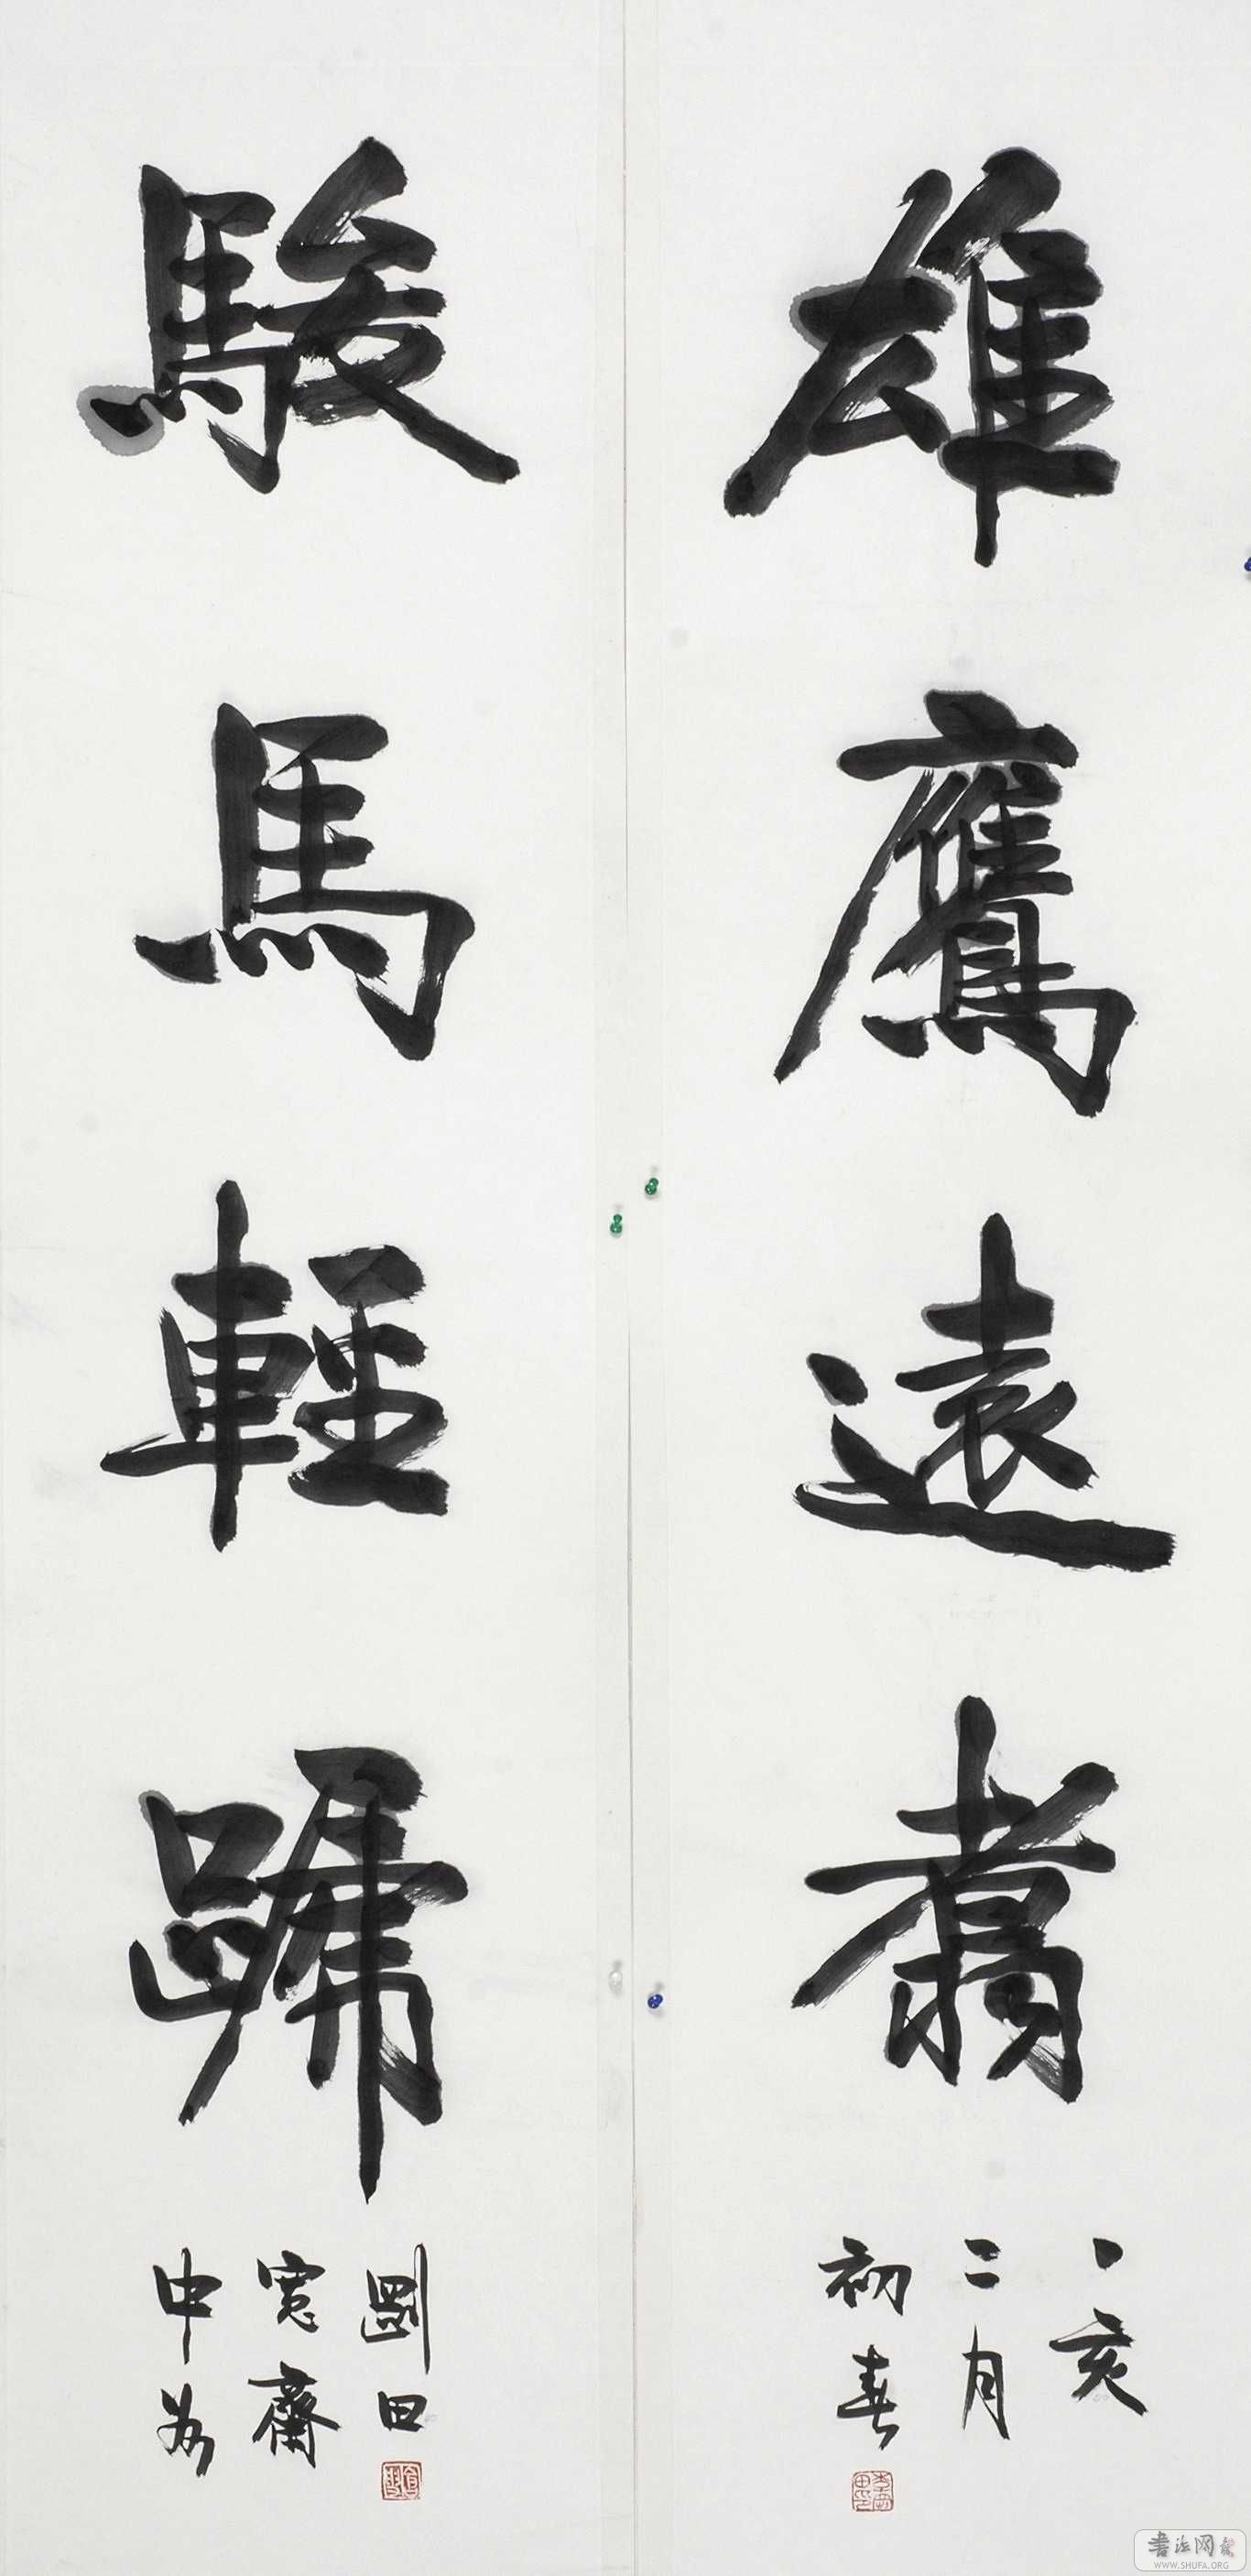 雄鷹遠翥
丁亥
二月
初春
駿馬輕蹄
剛田
寬齋
中為
書法网
WWW.SHUFA.ORG